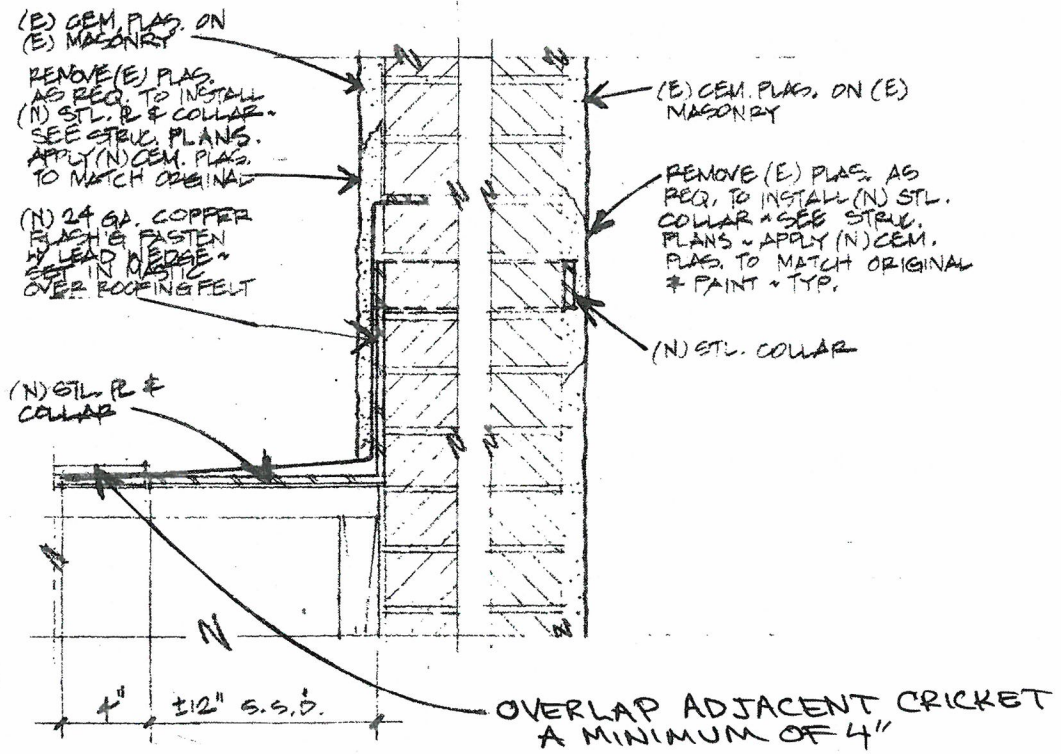 (E) CEM. PLAS. ON
(E) MASONRY
REMOVE (E) PLAS.
AS REQ. TO INSTALL
(N) STL. PL & COLLAR ~
SEE STRUC. PLANS.
APPLY (N) CEM. PLAS.
TO MATCH ORIGINAL
(N) 24 GA. COPPER
FLASH'G FASTEN
W/ LEAD WEDGE ~
SET IN MASTIC
OVER ROOFING FELT
(N) STL. PL &
COLLAR
(E) CEM. PLAS. ON (E)
MASONRY
REMOVE (E) PLAS. AS
REQ. TO INSTALL (N) STL.
COLLAR ~ SEE STRUC.
PLANS ~ APPLY (N) CEM.
PLAS. TO MATCH ORIGINAL
& PAINT ~ TYP.
(N) STL. COLLAR
4" ±12" S.S.D.
OVERLAP ADJACENT CRICKET
A MINIMUM OF 4"